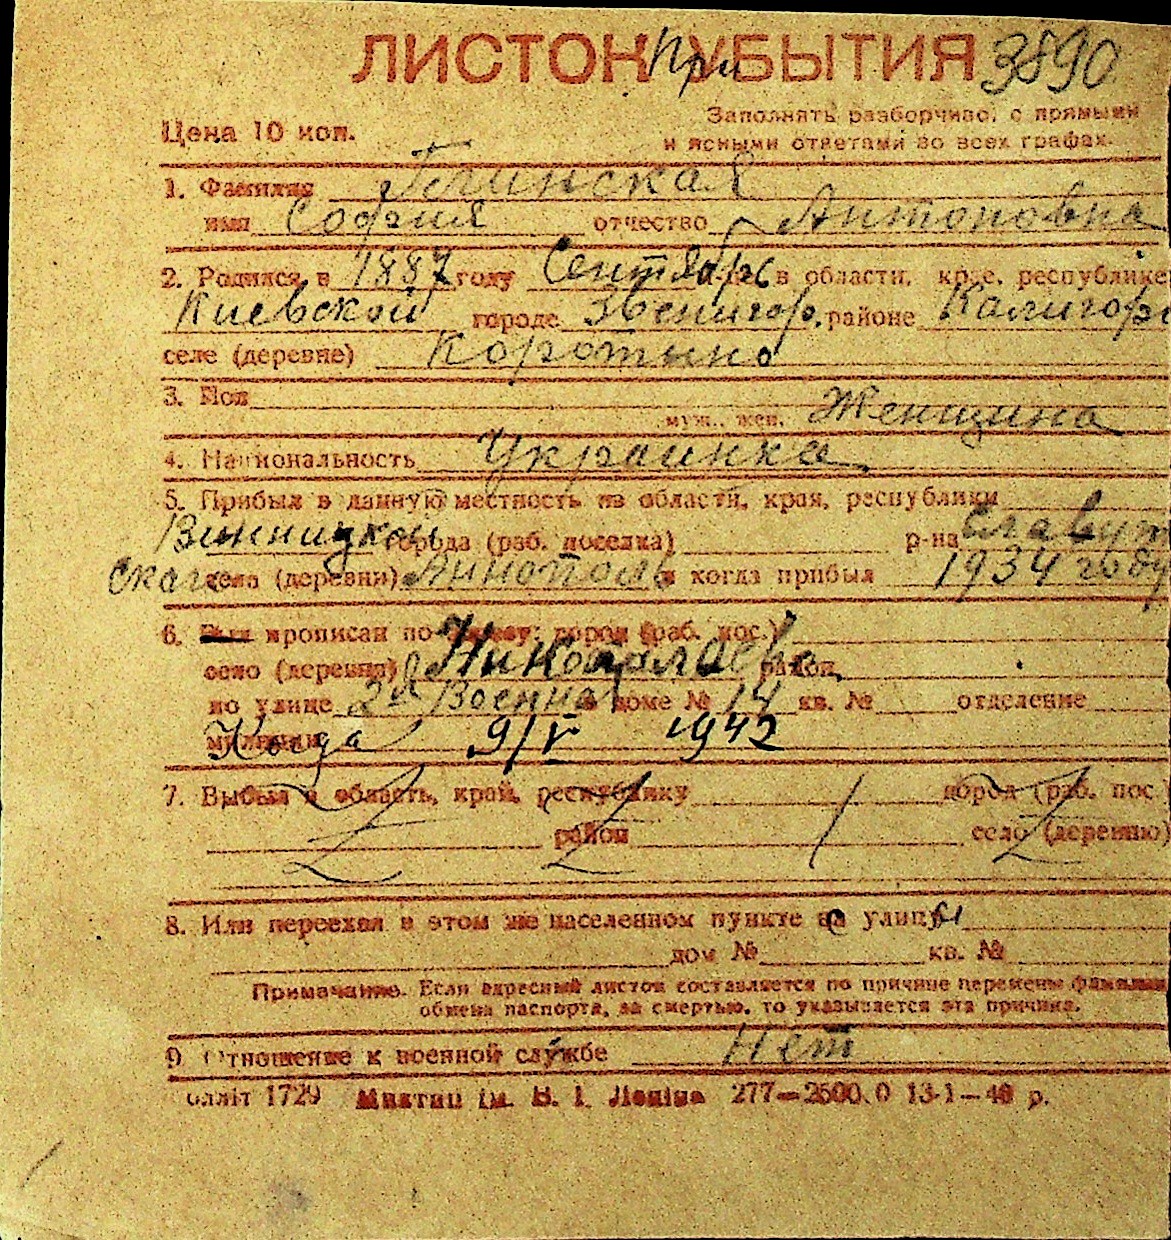 ЛИСТОК При УБЫТИЯ 3890
Цена 10 коп.
Заполнять разборчиво, с прямыми
и ясными ответами во всех графах.
1. Фамилия
имя София отчество Антоновна
2. Родился в 1887 году Сентябрь в области, крае, республике
Киевской городе Звенигор. районе Калигор
селе (деревне) Коротыно
3. Пол
муж., жен. Женщина
4. Национальность Украинка
5. Прибыл в данную местность из области, края, республики
Винницкой города (раб. поселка) р-на Славут
ского села (деревни) и когда прибыл 1934 году
6. прописан по город (раб. пос.)
село (деревня) район
по улице 2я Военная доме № 14 кв. № отделение
милиции Когда 9/V 1942
7. Выбыл в область, край, республику город (раб. пос.)
район село (деревню)
8. Или переехал в этом же населенном пункте с улицы
дом № кв. №
Примечание. Если адресный листок составляется по причине перемены фамилии,
обмена паспорта, за смертью, то указывается эта причина.
9. Отношение к военной службе Нет
олліт 1729 ім. В. І. Леніна 277—2500.0 13-1—40 р.